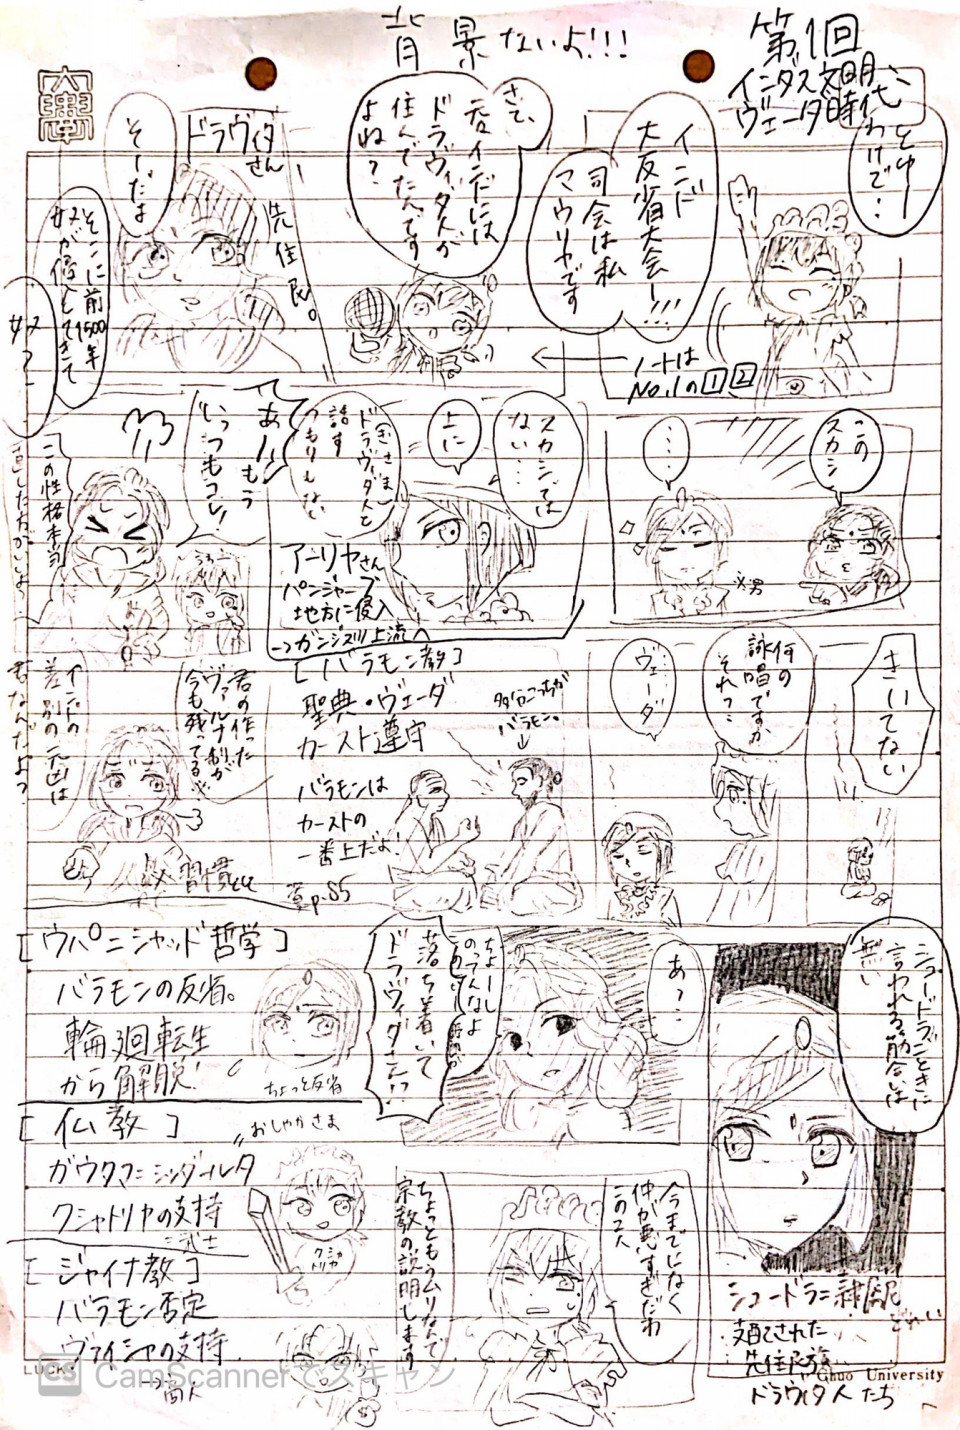 背景ないよ!!!
第1回
インダス文明
ヴェーダ時代
とゆー
わけで…
インド
大反省大会ー!!!
司会は私
マウリヤです
ノートは
No.1の1 2
さて、
元々インドには
ドラヴィダ人が
住んでたんです
よね?
ドラヴィダ
さん
先住民。
そーだよ
そこに前1500年
奴が侵入してきて
奴?
この
スカシ
……
※男
スカシては
ない…
上に
ドラヴィダ人と
話す
つもりもない
アーリヤさん
パンジャーブ
地方に侵入
→ガンジス川上流へ
あー!もう
いっつもコレ!
この性格本当
直した方がいいよ…
きいてない
何の
詠唱ですか
それ?…
ヴェーダ
[バラモン教]
聖典・ヴェーダ
カースト遵守
バラモンは
カーストの
一番上だよ!
多分こっちが
バラモン。
君の作った
ヴァルナ制が
今も残ってる
インドの
差別の元凶は
君なんだよっ?
習慣とし
p.85
シュードラごときに
言われる筋合いは
無い
シュードラ=隷属民
どれい
支配された
先住民族
ドラヴィダ人たち
あっ…
落ち着いて
ドラヴィダさん!?
[ウパニシャッド哲学]
バラモンの反省。
輪廻転生
から解脱!
ちょっと反省
[仏教]
おしゃかさま
ガウタマ=シッダールタ
クシャトリヤの支持
=武士
クシャ
トリヤ
[ジャイナ教]
バラモン否定
ヴァイシャの支持
→商人
今までになく
仲が悪すぎだわ
この2人
ちょっともうムリなんで
宗教の説明します
LUCKY
CamScannerでスキャン
Chuo University